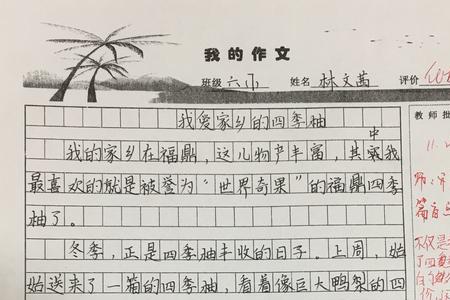 我的作文
班级 六 姓名 林文茜 评价
教师批
我爱家乡的四季柚
我的家乡在福鼎，这儿物产丰富，其中我
最喜欢的就是被誉为“世界奇果”的福鼎四季
柚了。
冬季，正是四季柚丰收的日子。上周，婶
婶送来了一篇的四季柚，看着像巨大鸭梨的四
11.